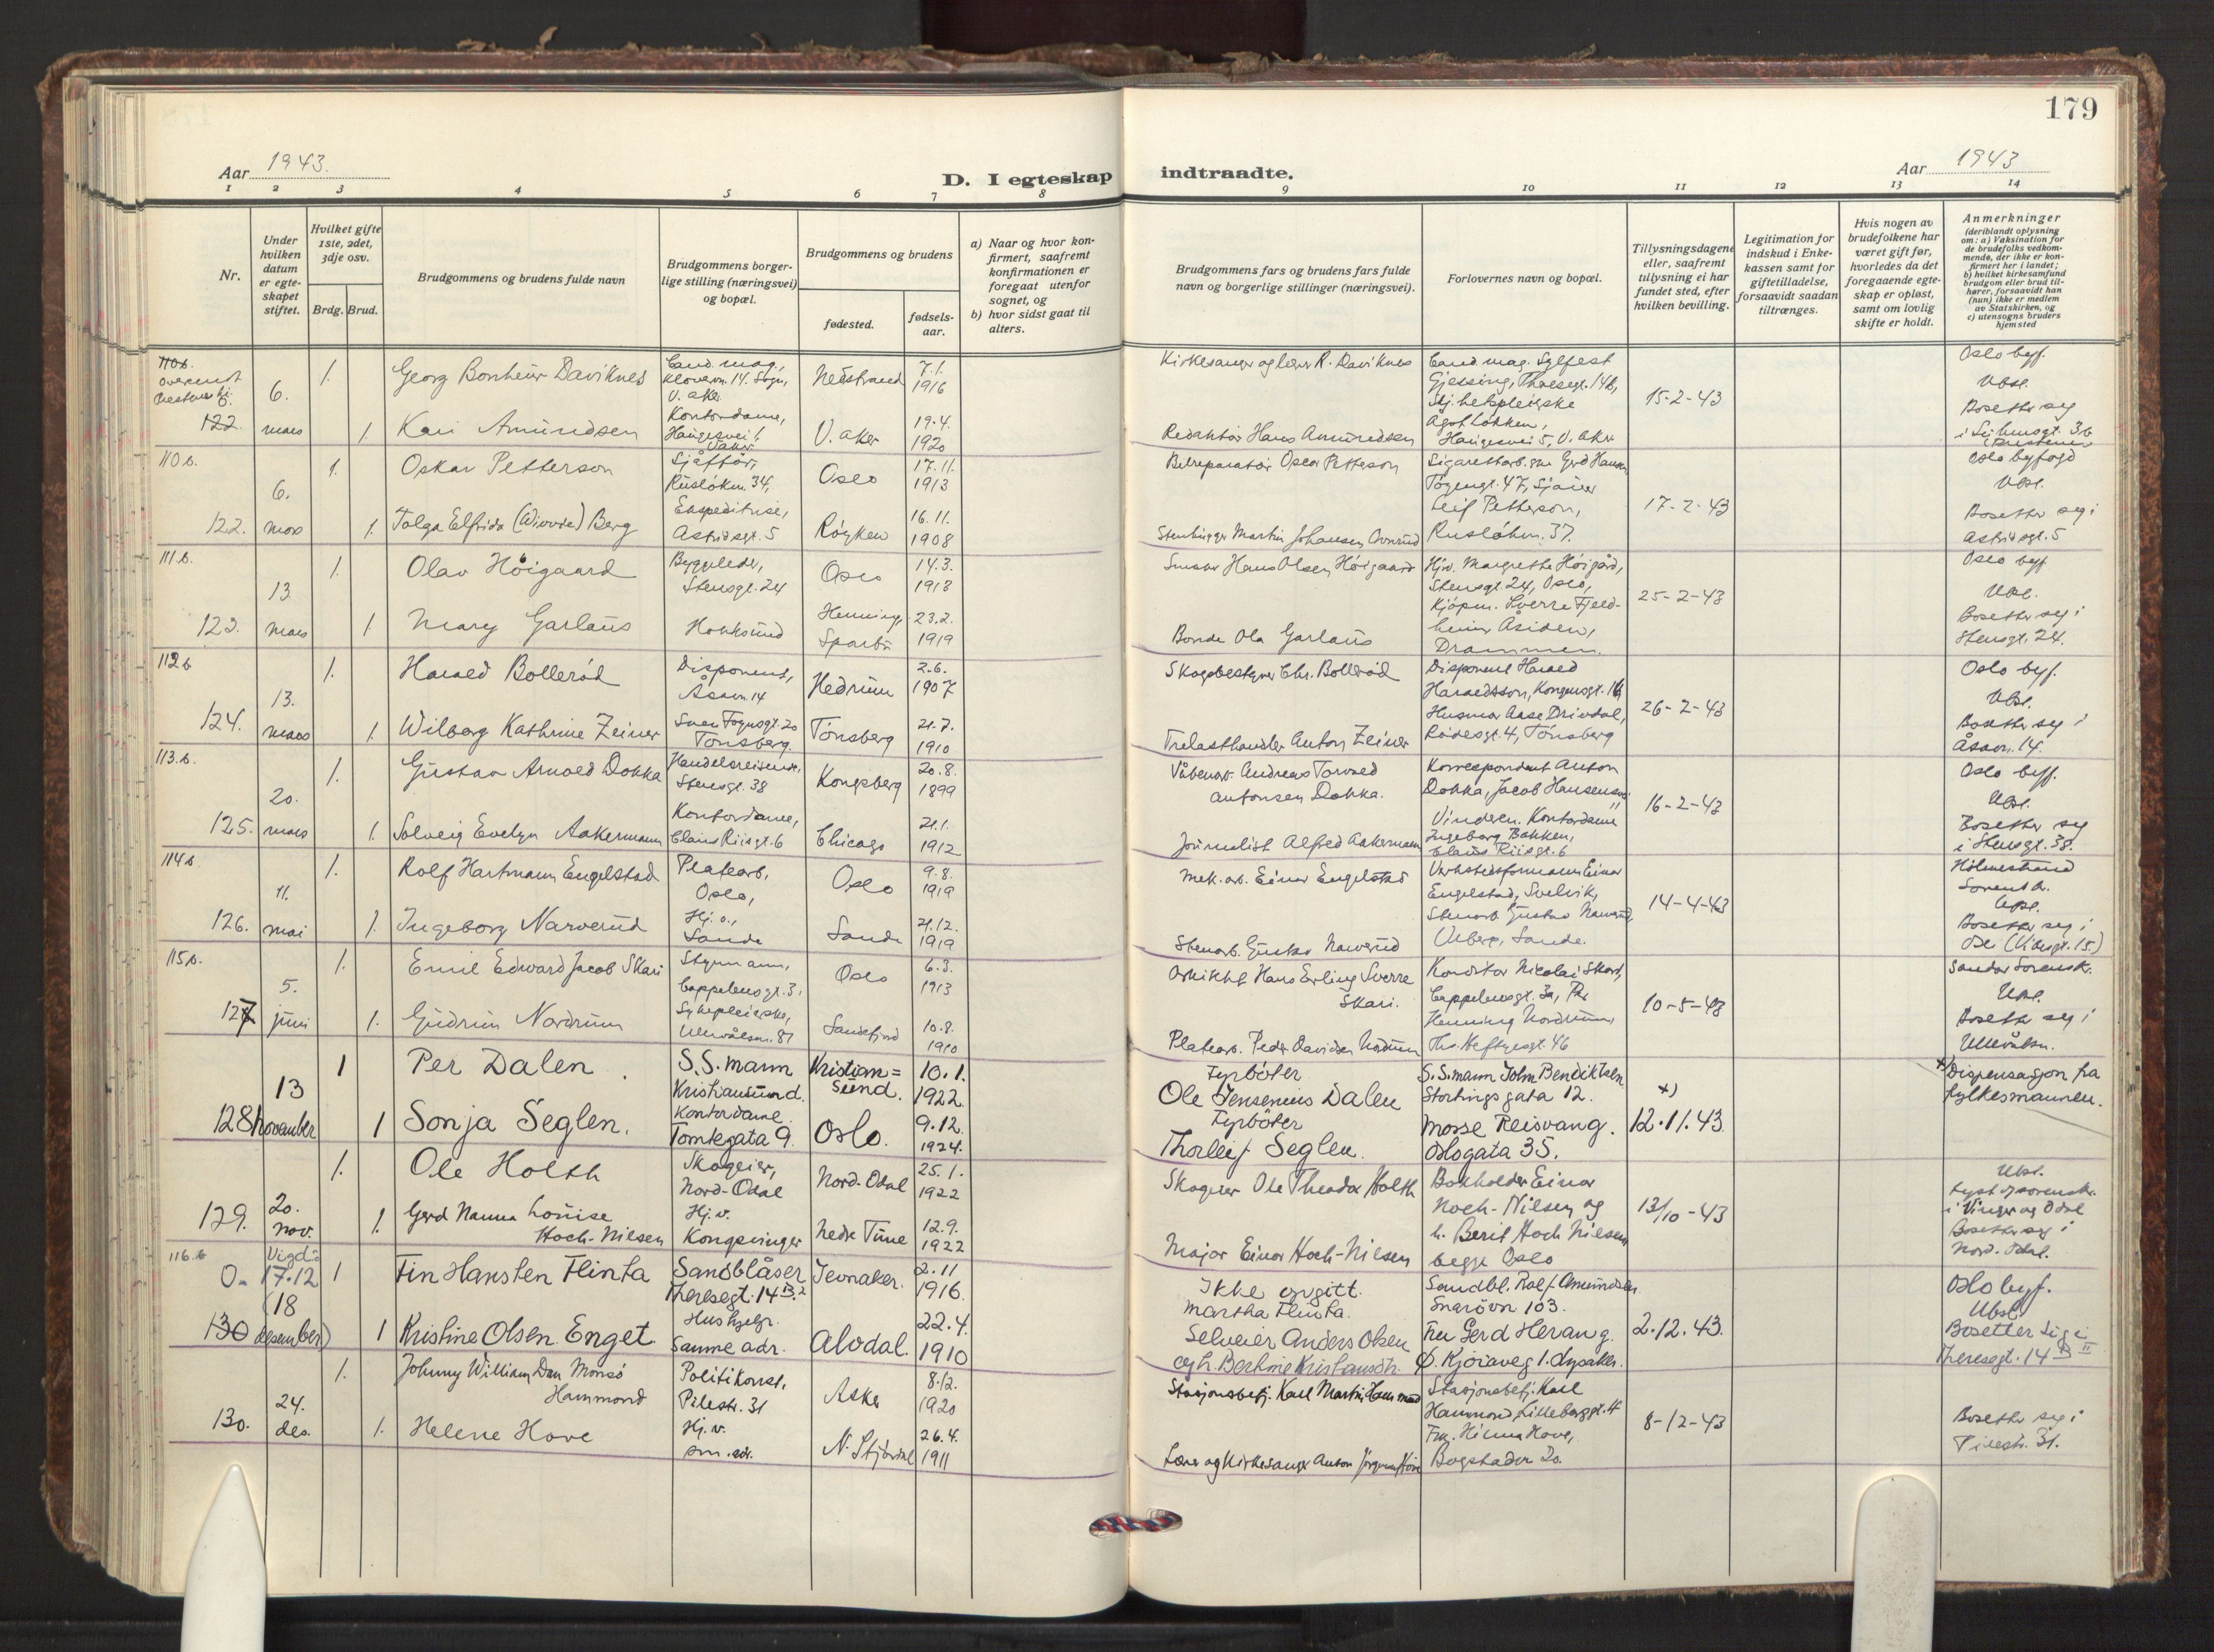 179
Aar 1943.
D. I egteskap indtraadte.
Aar 1943
1 2 3 4 5 6 7 8 9 10 11 12 13 14
Nr.
Under hvilken datum er egteskapet stiftet.
Hvilket gifte 1ste, 2det, 3dje osv.
Brdg. Brud.
Brudgommens og brudens fulde navn
Brudgommens borgerlige stilling (næringsvei) og bopæl.
Brudgommens og brudens
fødested.
fødselsaar.
a) Naar og hvor konfirmert, saafremt konfirmationen er foregaat utenfor sognet, og
b) hvor sidst gaat til alters.
Brudgommens fars og brudens fars fulde navn og borgerlige stillinger (næringsvei).
Forlovernes navn og bopæl.
Tillysningsdagene eller, saafremt tillysning ei har fundet sted, efter hvilken bevilling.
Legitimation for indskud i Enkekassen samt for giftetilladelse, forsaavidt saadan tiltrænges.
Hvis nogen av brudefolkene har været gift før, hvorledes da det foregaaende egteskap er opløst, samt om lovlig skifte er holdt.
Anmerkninger (deriblandt oplysning om: a) Vaksination for de brudefolks vedkommende, der ikke er konfirmert her i landet; b) hvilket kirkesamfund brudgom eller brud tilhører, forsaavidt han (hun) ikke er medlem av Statskirken, og c) utensogns bruders hjemsted
110b. 6. 1. Georg Bonheur Daviknes Cand. mag., Kloverv. 14. Sogn, V. Aker Nedstrand 7.1. 1916 Kirkesanger og lærer R. Daviknes Cand. mag. Sylfest Gjessing, Theresegt. 14b, 15-2-43 Oslo byf.
122. mars 1. Kari Amundsen Kontordame, V. Aker 19.4. 1920 Redaktør Hans Amundsen Agot Løkken, Haugesvei 5, V. Aker Ubsl. Bosetter seg
110b. 6. 1. Oskar Petterson Sjåfør, Ruseløkv. 34, Oslo 17.11. 1913 Bilreparatør Oscar Petterson Sigarettarb.ske Gerd Hansen, Tøyengt. 47, Sjåfør 17-2-43 Oslo byfogd Ubsl.
122. mars 1. Tolga Elfrida Berg Ekspeditrise, Astridsgt. 5 Røyken 16.11. 1908 Stenhugger Martin Johansen Leif Petterson, Ruseløkv. 37. Bosetter seg i Astridsgt. 5
111b. 13 1. Olav Høigaard Byggeleder, Stensgt. 24 Oslo 14.3. 1918 Smed Hans Olsen Høigaard Hjv. Margrethe Høigård, Stensgt. 24, Oslo, 25-2-43 Oslo byf Ubsl.
123. mars 1 Mary Garlaus Hokksund Henning, Sparbu 23.2. 1919 Bonde Ola Garlaus Kjøpm. Sverre Fjeldheim Åsiden, Drammen. Bosetter seg i Stensgt. 24.
112b 13. 1. Harald Bollerød Disponent, Åsavn. 14 Hedrum 2.6. 1907 Skogbestyrer Chr. Bollerød Disponent Harald Haraldsson, Kongensgt. 16, 26-2-43 Oslo byf. Ubsl.
124. mars 1 Wilborg Kathrine Zeiner Svend Foynsgt. 20 Tønsberg Tønsberg 21.7. 1910 Trelasthandler Anton Zeiner Husmor Aase Drivdal, Rådesgt. 4, Tønsberg Bosetter seg i Åsavn. 14.
113.b. 20. 1. Gustav Arnold Dokka Handelsreisende, Stensgt. 38 Kongsberg 20.8. 1899 Våbenarb. Andreas Torvald Antonsen Dokka. Korrespondent Anton Dokka, Jacob Hansensvei 11 Vinderen. 16-2-43 Oslo byf. Ubsl.
125. mars 1. Solveig Evelyn Aakermann Kontordame, Claus Riisgt. 6 Chicago 21.1. 1912 Journalist Alfred Aakermann Kontordame Ingeborg Bakken, Claus Riisgt. 6 Bosetter seg i Stensgt. 38.
114b 11. 1. Rolf Hartmann Engelstad Platearb., Oslo, Oslo 9.8. 1919 Mek. arb. Einar Engelstad Verkstedsformann Einar Engelstad, Svelvik, 14-4-43 Holmestrand Sorensk. Ubsl.
126. mai 1. Ingeborg Narverud Hj. v., Sande Sande 21.12. 1919 Stenarb. Gustav Narverud Stenarb. Gustav Narverud, Sande. Bosetter seg i Oslo
115b. 5. 1. Emil Edward Jacob Skari Styrmann, Cappelensgt. 3, Oslo 6.3. 1913 Arkitekt Hans Erling Sverre Skari. Konditor Nicolai Skari, Cappelensgt. 3a, 10-5-43 Sandar Sorensk. Ubsl.
127 juni 1. Gudrun Nordrum Sykepleierske, Ullevålsvn. 87 Sandefjord 10.8. 1910 Platearb. Peder Davidsen Nordrum Henning Nordrum Ths. Heftyesgt. 46 Bosetter seg i Ullevålsv.
13 1 Per Dalen S.S. mann Kristiansund. Kristiansund. 10.1. 1922 Fyrbøter Ole Jensenius Dalen S.S. mann John Bendiktsen Stortingsgata 12. x) x) Dispensasjon fra fylkesmannen.
128 november 1 Sonja Seglen. Kontordame Tomtegata 9. Oslo. 9.12. 1924. Fyrbøter Thorleif Seglen. Mosse Reisvang. Oslogata 35. 12.11.43.
1. Ole Holth Skogeier, Nord-Odal Nord-Odal 25.1. 1922 Skogeier Ole Theodor Holth Bokholder Einar Hoch-Nilsen og 13/10-43 Ubsl.
129. 20. nov. 1. Gerd Nanna Louise Hoch-Nilsen Hj.v. Kongsvinger Nedre Tune 12.9. 1922 Major Einar Hoch-Nilsen h. Berit Hoch Nilsen begge Oslo i Vinger og Odal Bosetter seg i Nord-Odal.
116.b Vigd: 17.12 (18 1 Fin Hansten Flinta Sandblåser Theresegt. 14 Jevnaker. 2.11 1916. Ikke oppgitt. Martha Flinta. Sandbl. Rolf Amundsen Snarøvn 103. Oslo byf. Ubsl.
130 desember) 1 Kristine Olsen Enget. Hushjelp. Samme adr. Alvdal. 22.4. 1910 Selveier Anders Olsen og h. Bertine Kristiansdtr. Fru Gerd Herang. Ø. Kjoiaveg 1. Lysaker. 2.12.43. Bosetter sig i Theresegt. 14 II
24. 1. Johnny William Dan Monsø Hammond Politikonst. Pilestr. 31 Asker 8.12. 1920 Stasjonsbetj. Karl Martin Hammond Stasjonsbetj. Karl Hammond, Lilleborggt. 4 8-12-43
130. des. 1. Helene Hove Hj.v. sm. adr. N. Stjørdal 26.4. 1911 Lærer og Kirkesanger Anton Jørgensen Hove Frk. Hilma Hove, Bogstadvn 20. Bosetter seg i Pilestr. 31.